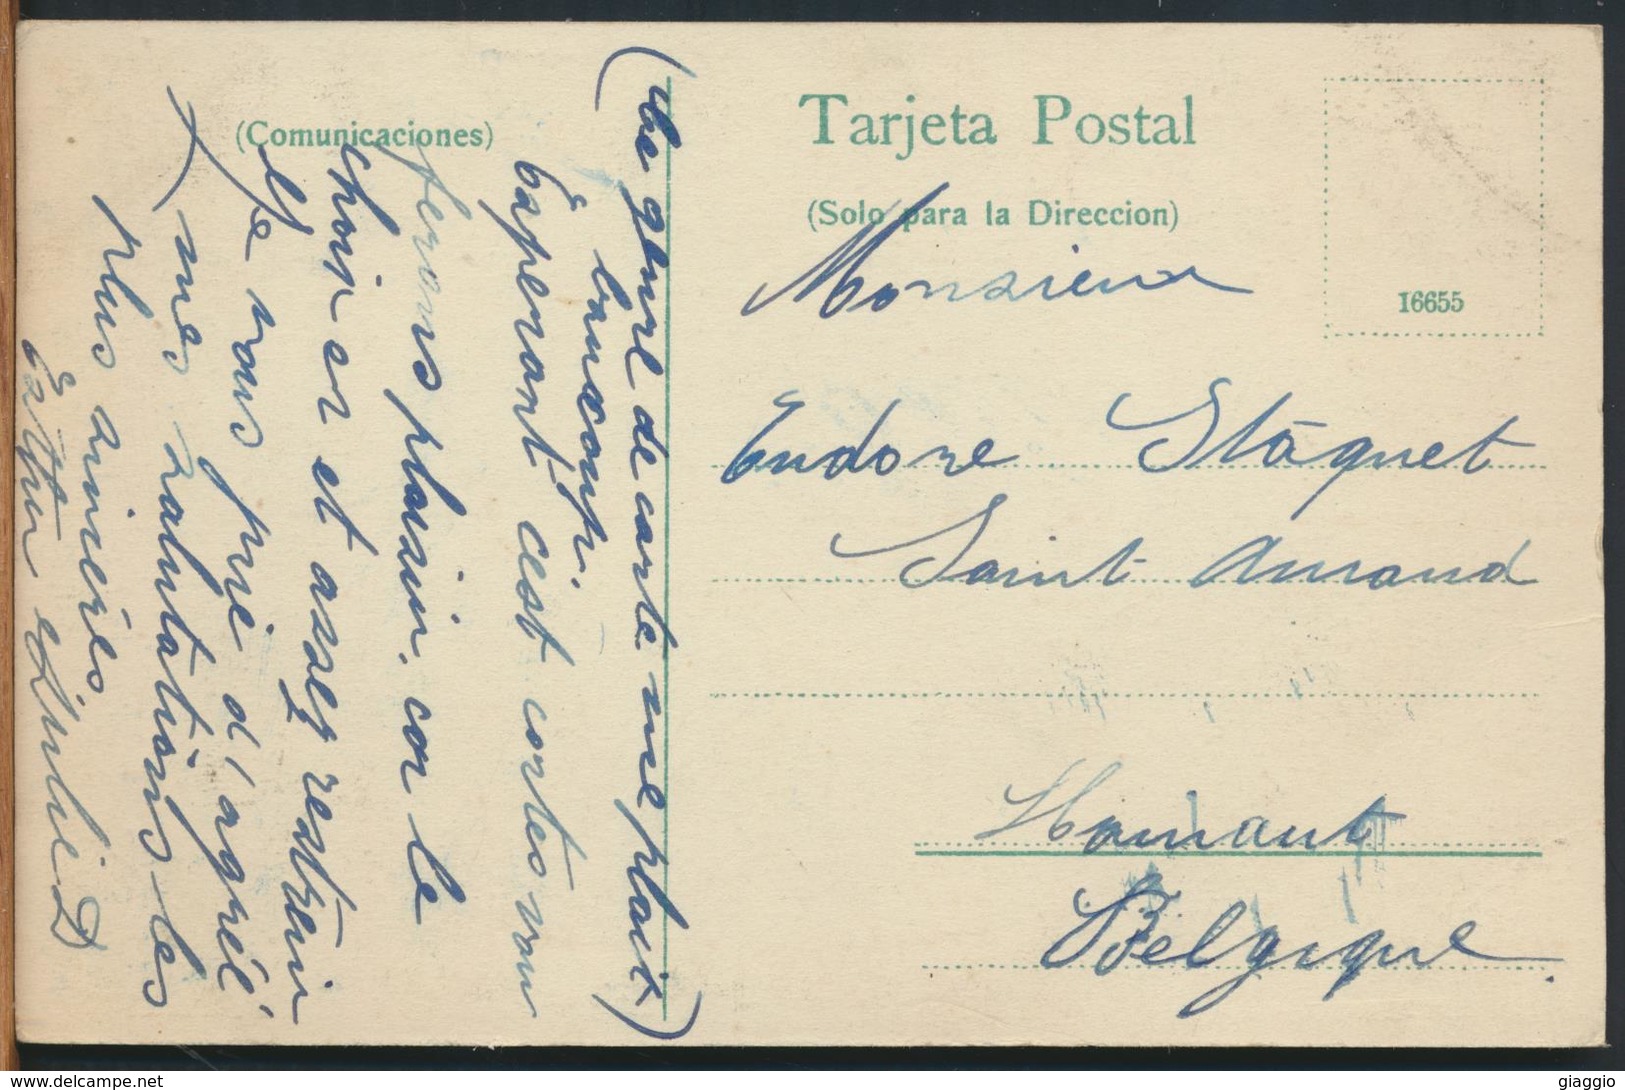 (Comunicaciones)
Tarjeta Postal
(Solo para la Direccion)
16655
Monsieur
Eudore Stáquet
Saint Amand
Hainaut
Belgique.
genre de carte me plait)
beaucoup.
Esperant cest cortes vous
ferons plaisir. car le
choix er et assez restrein
Je vous prie d'agréé
mes salutations les
plus sincères
D
giaggio
www.delcampe.net